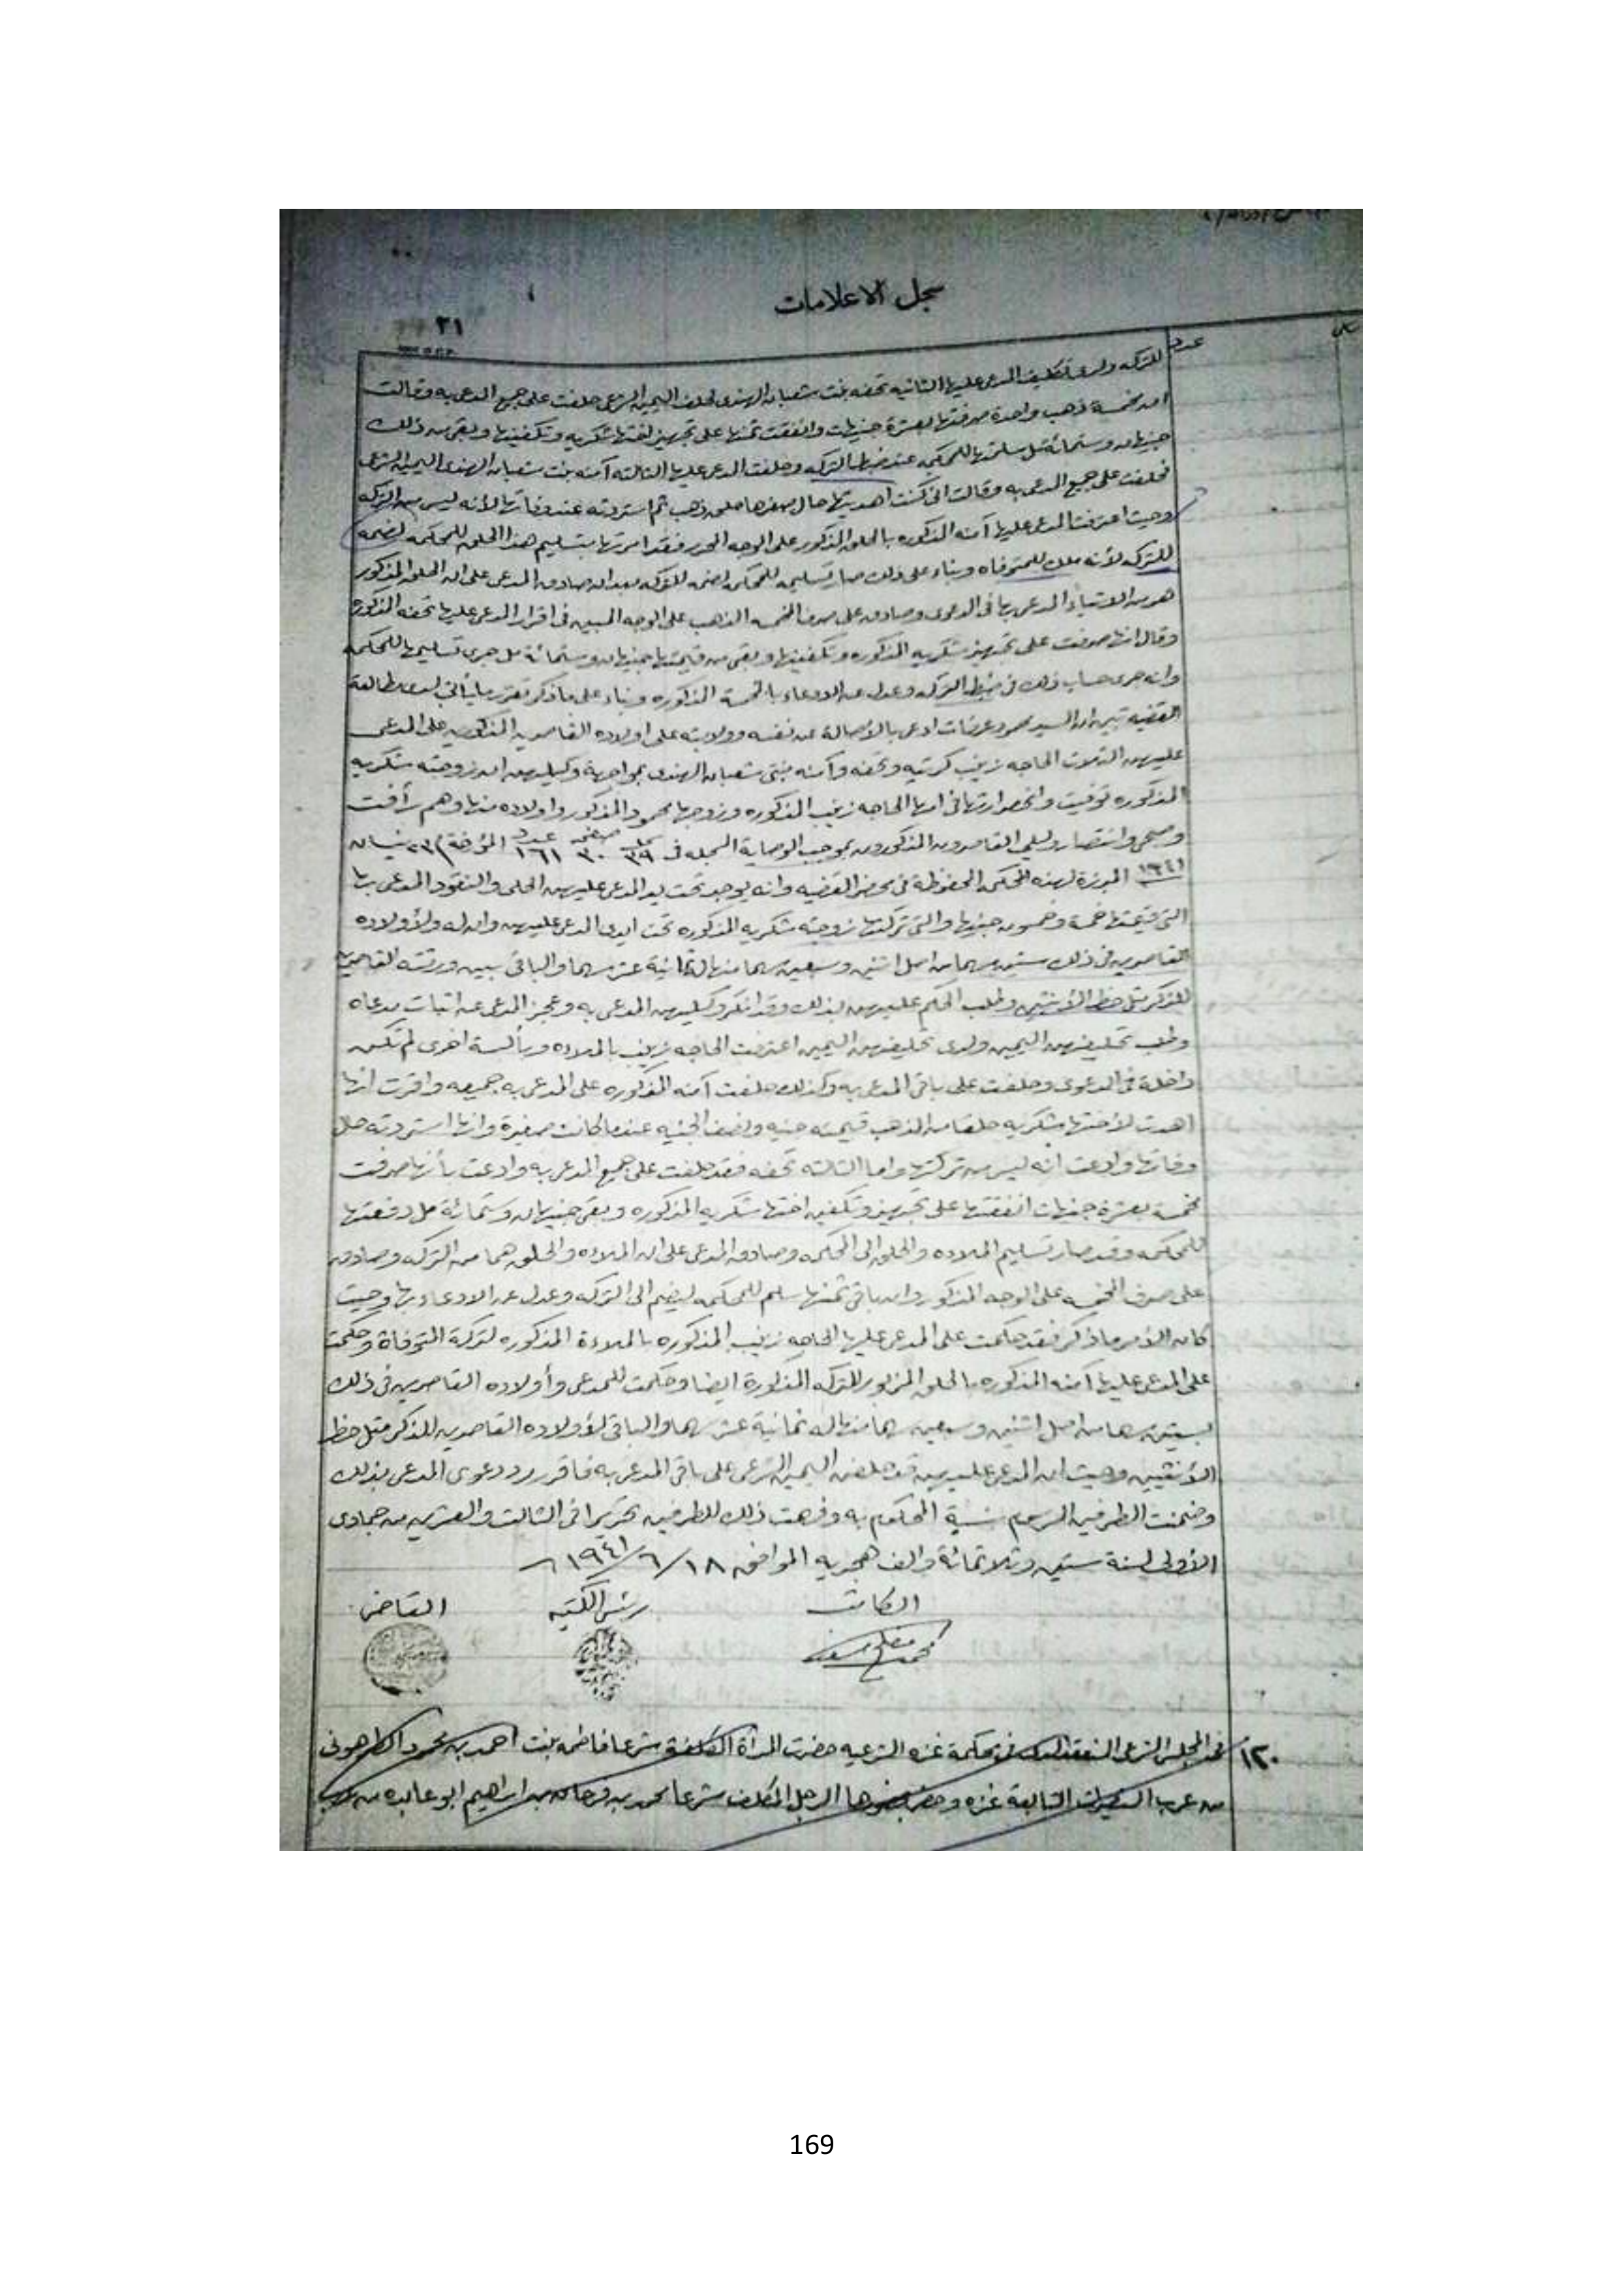 سجل الاعلامات
٢١
عدد
للتركه ولدى تكليف المدعى عليها الثانيه تحفه بنت شعبان الهندى لحلف اليمين الشرعى حلفت على جميع المدعى به وقالت
ان خمسة ذهب واحدة صرفتها بعشرة جنيهات وانفقت ثمنها على تجهيز اختها شكريه وتكفينها وبقى من ذلك
جنيهان وستمائة مل سلمتها للمحكمه عند ضبط التركه وحلفت المدعى عليها الثالثه آمنه بنت شعبان الهندى اليمين الشرعى
فحلفت على جميع المدعى به وقالت انى كنت اهديتها حال صغرها حلق ذهب ثم استردته عند وفاتها لأنه ليس من التركه
وحيث اعترفت المدعى عليها آمنه المذكوره بالحلق المذكور على الوجه المحرر فقد امرتها بتسليم هذا الحلق للمحكمه لضمه
للتركه لأنه ملك للمتوفاه وبناء على ذلك صار تسليمه للمحكمه لضمه للتركه بعد ان صادق المدعى على ان الحلق المذكور
هو من الاشياء المدعى بها فى الدعوى وصادق على صرف الخمسه الذهب على الوجه المبين فى اقرار المدعى عليها تحفه المذكوره
وقال انها صرفت على تجهيز شكريه المذكوره وتكفينها وبقى من قيمتها جنيهان وستمائة مل جرى تسليمها للمحكمه
وانه جرى حساب ذلك فى ضبط التركه وعدل عن الادعاء بالخمسة المذكوره وبناء على ماذكر تقرر ما يأتى لدى مطالعة
القضيه تبين ان السيد محمود عرفات ادعى بالأصالة عن نفسه وولايته على اولاده القاصرين المذكورين على المدعى
عليهن الثلاث الحاجه زينب كرتيه وتحفه وآمنه بنتى شعبان الهندى بمواجهة وكيلهن ان زوجته شكريه
المذكوره توفيت وانحصر ارثها فى امها الحاجه زينب المذكوره وزوجها محمود المذكور واولاده منها وهم رأفت
وصبحى وانتصار وليلى القاصرون المذكورون بموجب الوصاية المسجله فى سجل ٣٩ صفحه ٣٠ عدد ١٦١ المؤرخة ٢٣ نيسان
١٩٤١ المبرزة لهذه المحكمه المحفوظة فى محضر القضيه وانه يوجد تحت يد المدعى عليهن الحلى والنقود المدعى بها
التى قيمتها خمسة وخمسون جنيها والتى تركتها زوجته شكريه المذكوره تحت ايدى المدعى عليهن وان له ولأولاده
القاصرين فى ذلك ستين سهما من اصل اثنين وسبعين سهما منها له ثمانية عشر سهما والباقى بين ورثته القاصرين
للذكر مثل حظ الأنثيين وطلب الحكم عليهن بذلك وقد انكر وكيلهن المدعى به وعجز المدعى عن اثبات مدعاه
وطلب تحليفهن اليمين ولدى تحليفهن اليمين اعترفت الحاجه زينب بالملاده وبألبسة اخرى لم تكن
داخلة فى الدعوى وحلفت على باقى المدعى به وكذلك حلفت آمنه المذكوره على المدعى به جميعه واقرت انها
اهدت لأختها شكريه حلقا من الذهب قيمته جنيه ونصف الجنيه عندما كانت صغيرة وانها استردته حال
وفاتها وادعت انه ليس من تركتها واما الثالثه تحفه فقد حلفت على جميع المدعى به وادعت بأنها صرفت
خمسة بعشرة جنيهات انفقتها على تجهيز وتكفين اختها شكريه المذكوره وبقى جنيهان وستمائة مل دفعتها
للمحكمه وقد صار تسليم الملاده والحلق الى المحكمه وصادق المدعى على ان الملاده والحلق هما من التركه وصادق
على صرف الخمسه على الوجه المذكور وان باقى ثمنها سلم للمحكمه ليضم الى التركه وعدل عن الادعاء بها وحيث
كان الأمر ماذكر فقد حكمت على المدعى عليها الحاجه زينب المذكوره بالملاءة المذكوره لتركة المتوفاة وحكمت
على المدعى عليها آمنه المذكوره بالحلق المزبور للتركه المذكورة ايضا وحكمت للمدعى وأولاده القاصرين فى ذلك
بستين سهما من اصل اثنين وسبعين سهما منها له ثمانية عشر سهما والباقى لأولاده القاصرين للذكر مثل حظ
الأنثيين وحيث ان المدعى عليهن قد حلفن اليمين الشرعى على باقى المدعى به فاقرر رد دعوى المدعى بذلك
وضمنت الطرفين الرسوم نسبة المحكوم به وفهمت ذلك للطرفين تحريرا فى الثالث والعشرين من جمادى
الأولى لسنة ستين وثلاثمائة والف هجريه الموافق ١٨/٦/١٩٤١
الكاتب
رئيس الكتبه
القاضى
١٢٠
فى المجلس الشرعى المنعقد لدى فى محكمة غزه الشرعيه حضرت المرأة المكلفة شرعا فاطمه بنت احمد بن محمود
من عرب التابعة غزه وحضر بحضورها الرجل المكلف شرعا محمد بن فرحان بن ابراهيم ابو عابده من
169